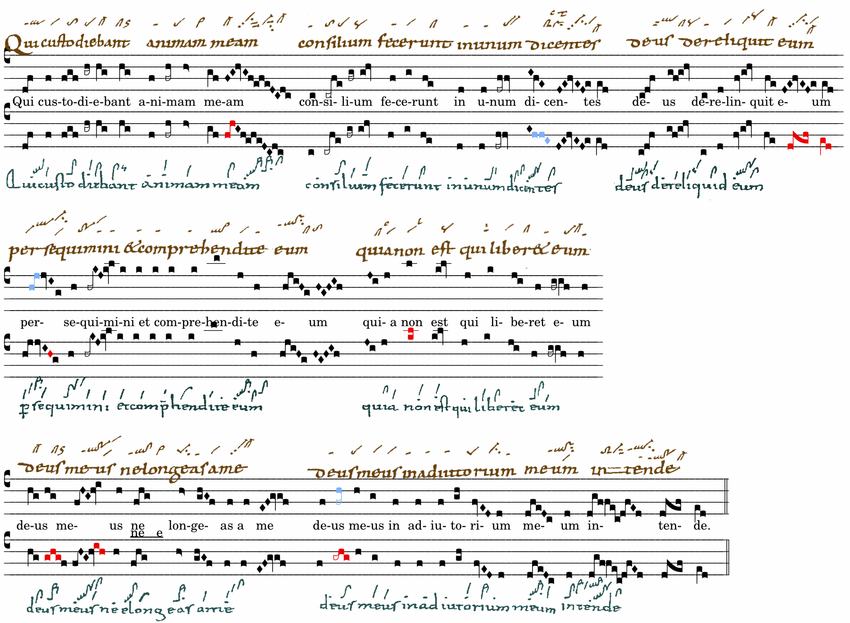 Qui custodiebant animam meam consilium fecerunt in unum dicentes deus dereliquit eum
Qui cus-to-di-e-bant a-ni-mam me-am con-si-li-um fe-ce-runt in u-num di-cen-tes de-us de-re-lin-quit e-um
Qui custo diebant animam meam consilium fecerunt in unum dicentes deus dereliquid eum
persequimini & comprehendite eum quia non est qui liber& eum
per-se-qui-mi-ni et com-pre-hen-di-te e-um qui-a non est qui li-be-ret e-um
p̲sequimini et comp̄hendite eum quia non est qui liberet eum
deus meus ne longe as a me deus meus in adiutorium meum intende
de-us me-us ne lon-ge-as a me de-us me-us in ad-iu-to-ri-um me-um in-ten-de.
ne e
deus meus ne elongeas a me deus meus in adiutorium meum intende